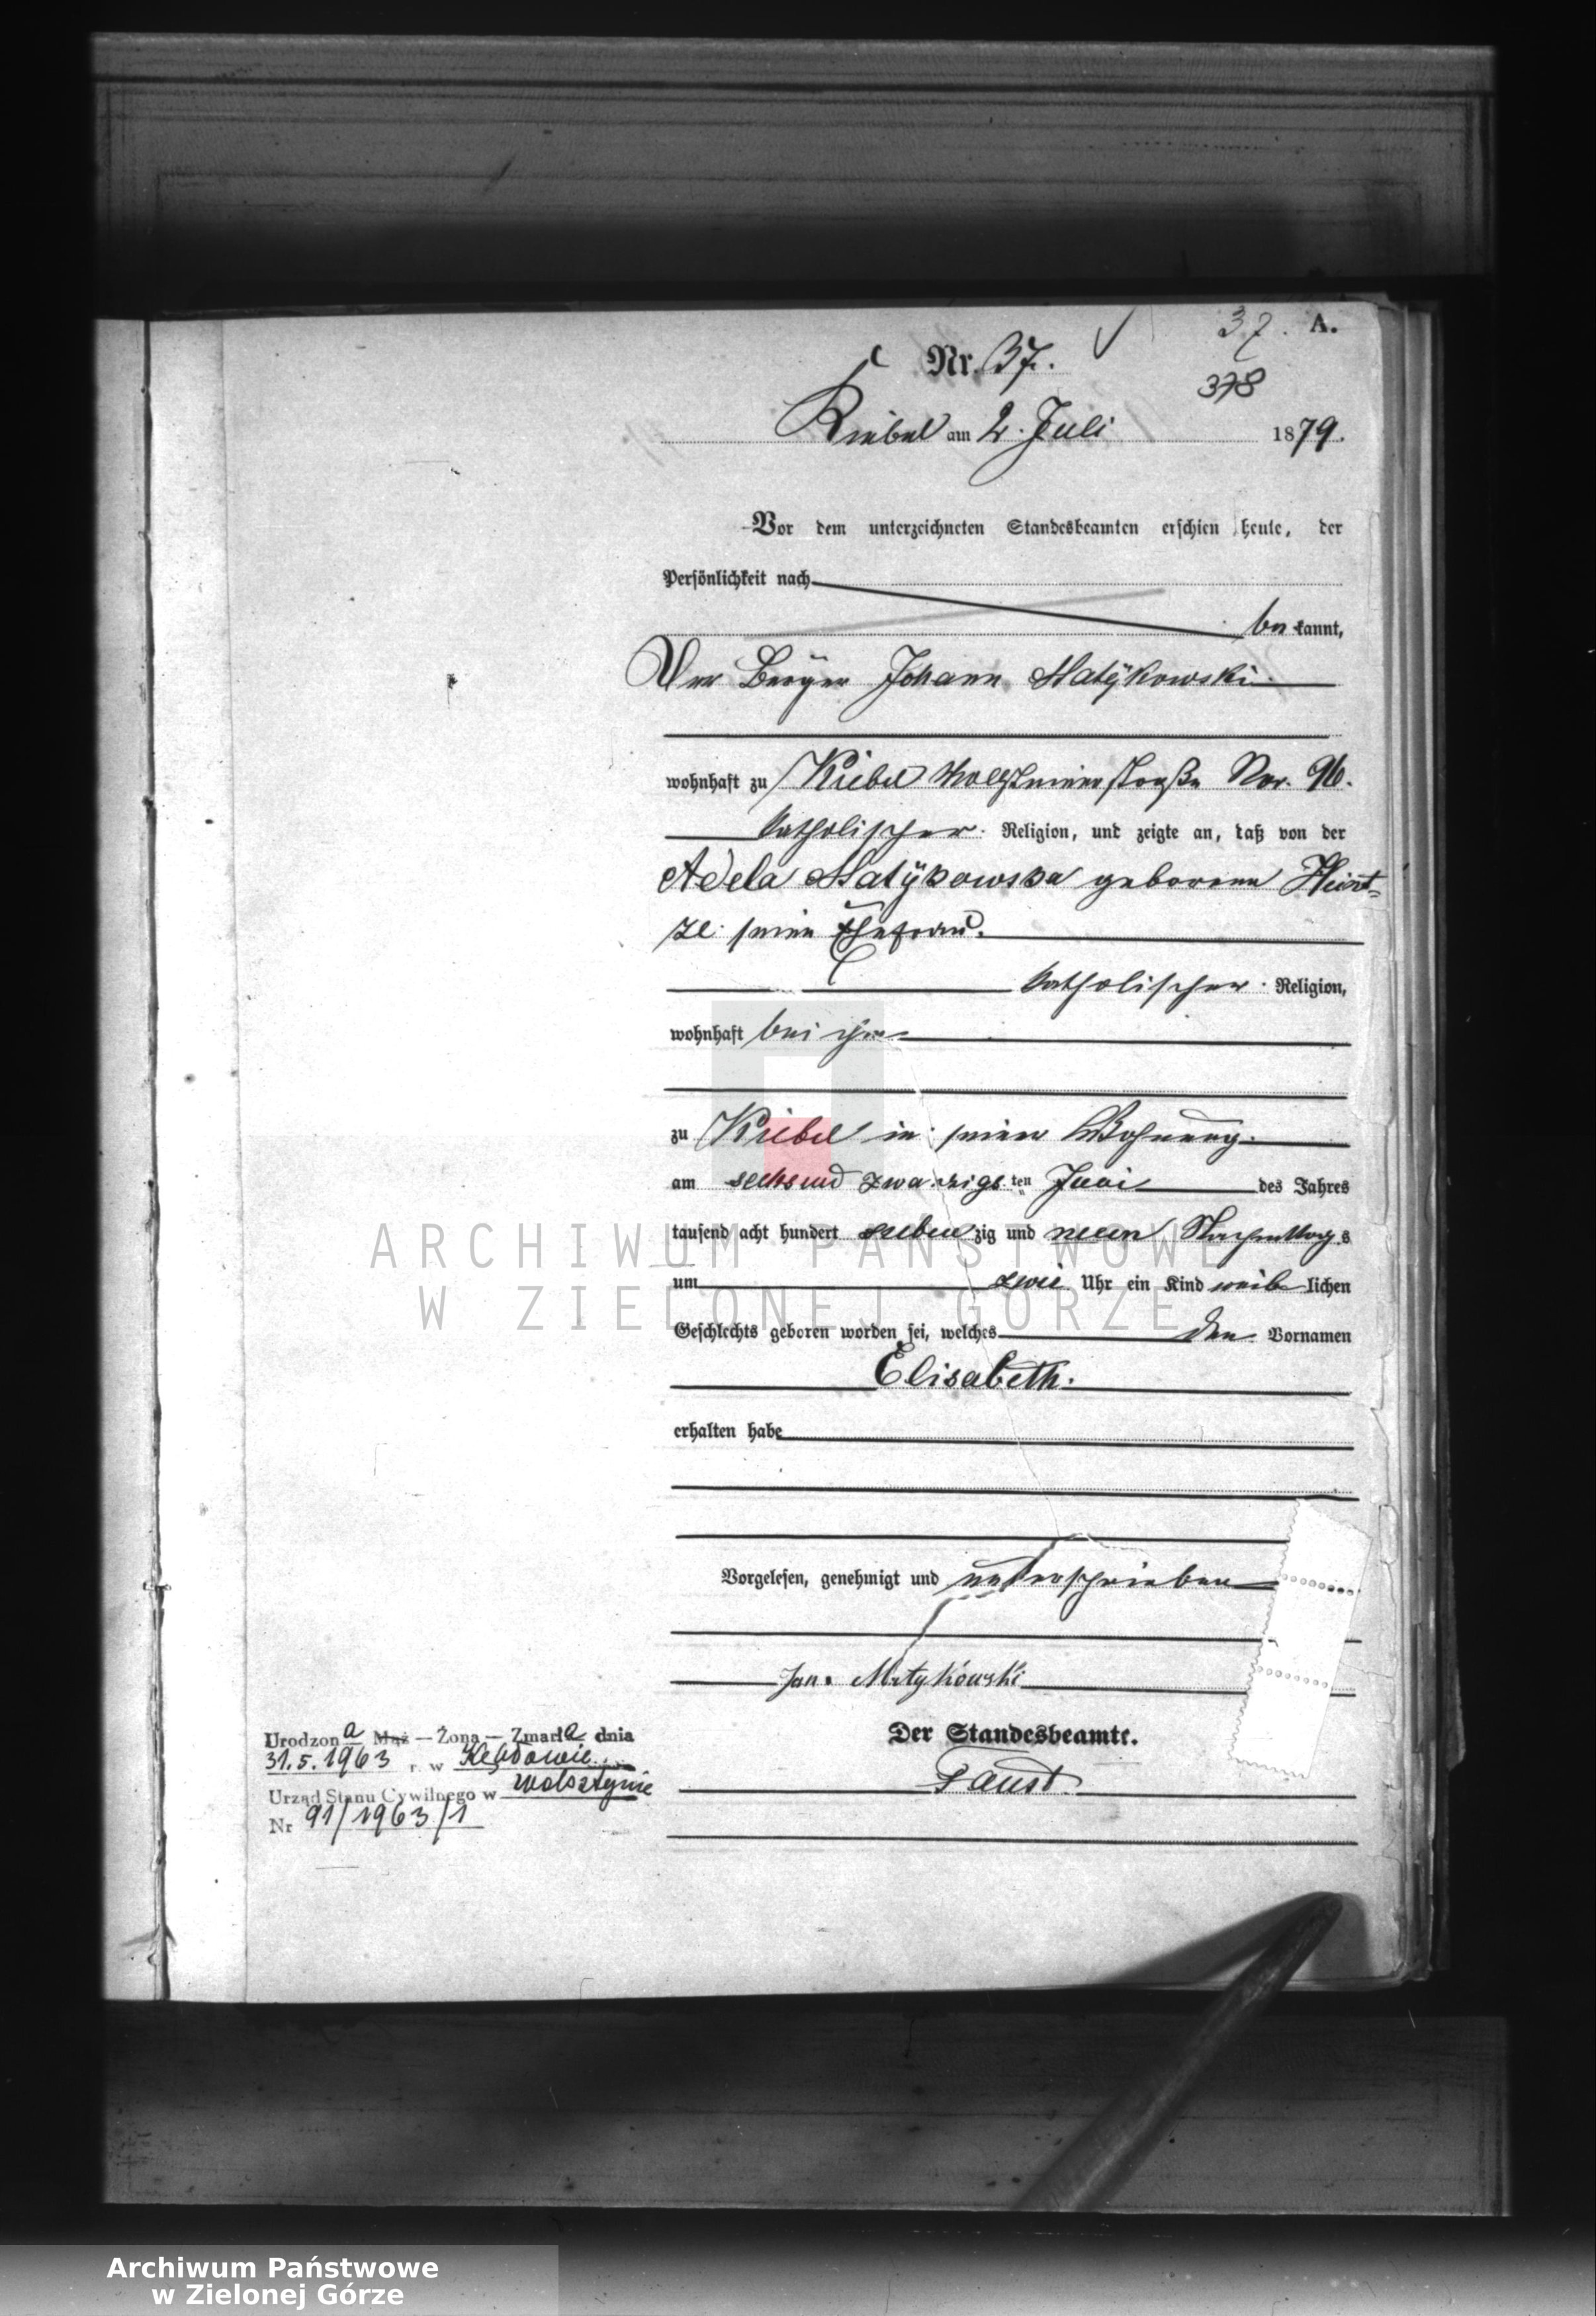 37. A.
Nr. 37.
378
Kiebel am 2. Juli 1879.
Vor dem unterzeichneten Standesbeamten erschien heute, der
Persönlichkeit nach
be kannt,
Der Bürger Johann Matÿkowski
wohnhaft zu Kiebel Wollsteinerstraße Nor. 96.
katholischer Religion, und zeigte an, daß von der
Adela Matÿkowska geborene Heint-
ze seine Ehefrau.
katholischer Religion,
wohnhaft bei ihm
zu Kiebel in seiner Wohnung
am sechsundzwanzigsten Juni des Jahres
tausend acht hundert siebenzig und neun Nachmittags
um zwei Uhr ein Kind weiblichen
Geschlechts geboren worden sei, welches den Vornamen
Elisabeth.
erhalten habe
Vorgelesen, genehmigt und unterschrieben
Jan Matykowski
Der Standesbeamte.
Faust
Urodzona Mąż — Żona — Zmarła dnia
31.5.1963 r. w Kębłowie
Urząd Stanu Cywilnego w Wolsztynie
Nr 91/1963/1
ARCHIWUM PAŃSTWOWE
W ZIELONEJ GÓRZE
Archiwum Państwowe
w Zielonej Górze